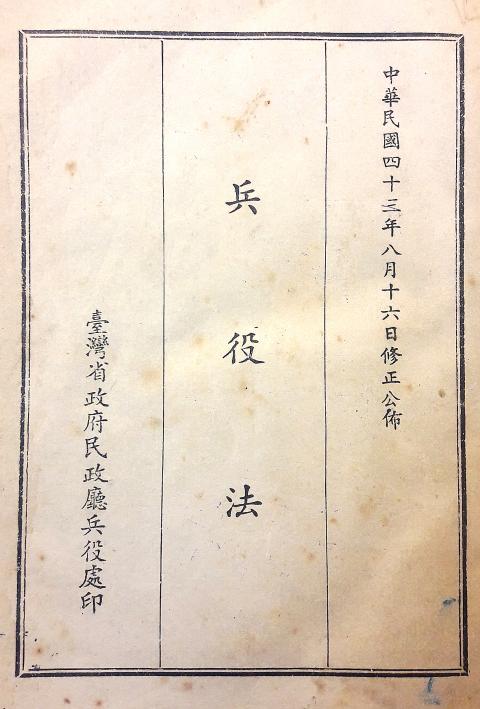 中華民國四十三年八月十六日修正公佈
兵役法
臺灣省政府民政廳兵役處印